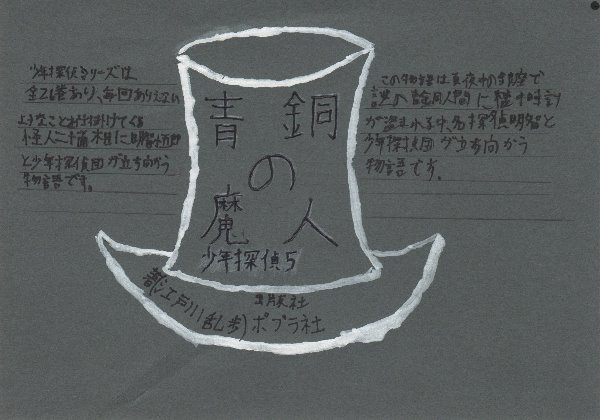 少年探偵シリーズは
全26巻あり、毎回ありえない
ようなことを仕掛けてくる
怪人二十面相に明智小五郎
と少年探偵団が立ち向かう
物語です。
青銅
の
魔人
少年探偵5
著(江戸川乱歩)
出版社
ポプラ社
この物語は真夜中の銀座で
謎の青銅人間に懐中時計
が盗まれる中、名探偵明智と
少年探偵団が立ち向かう
物語です。